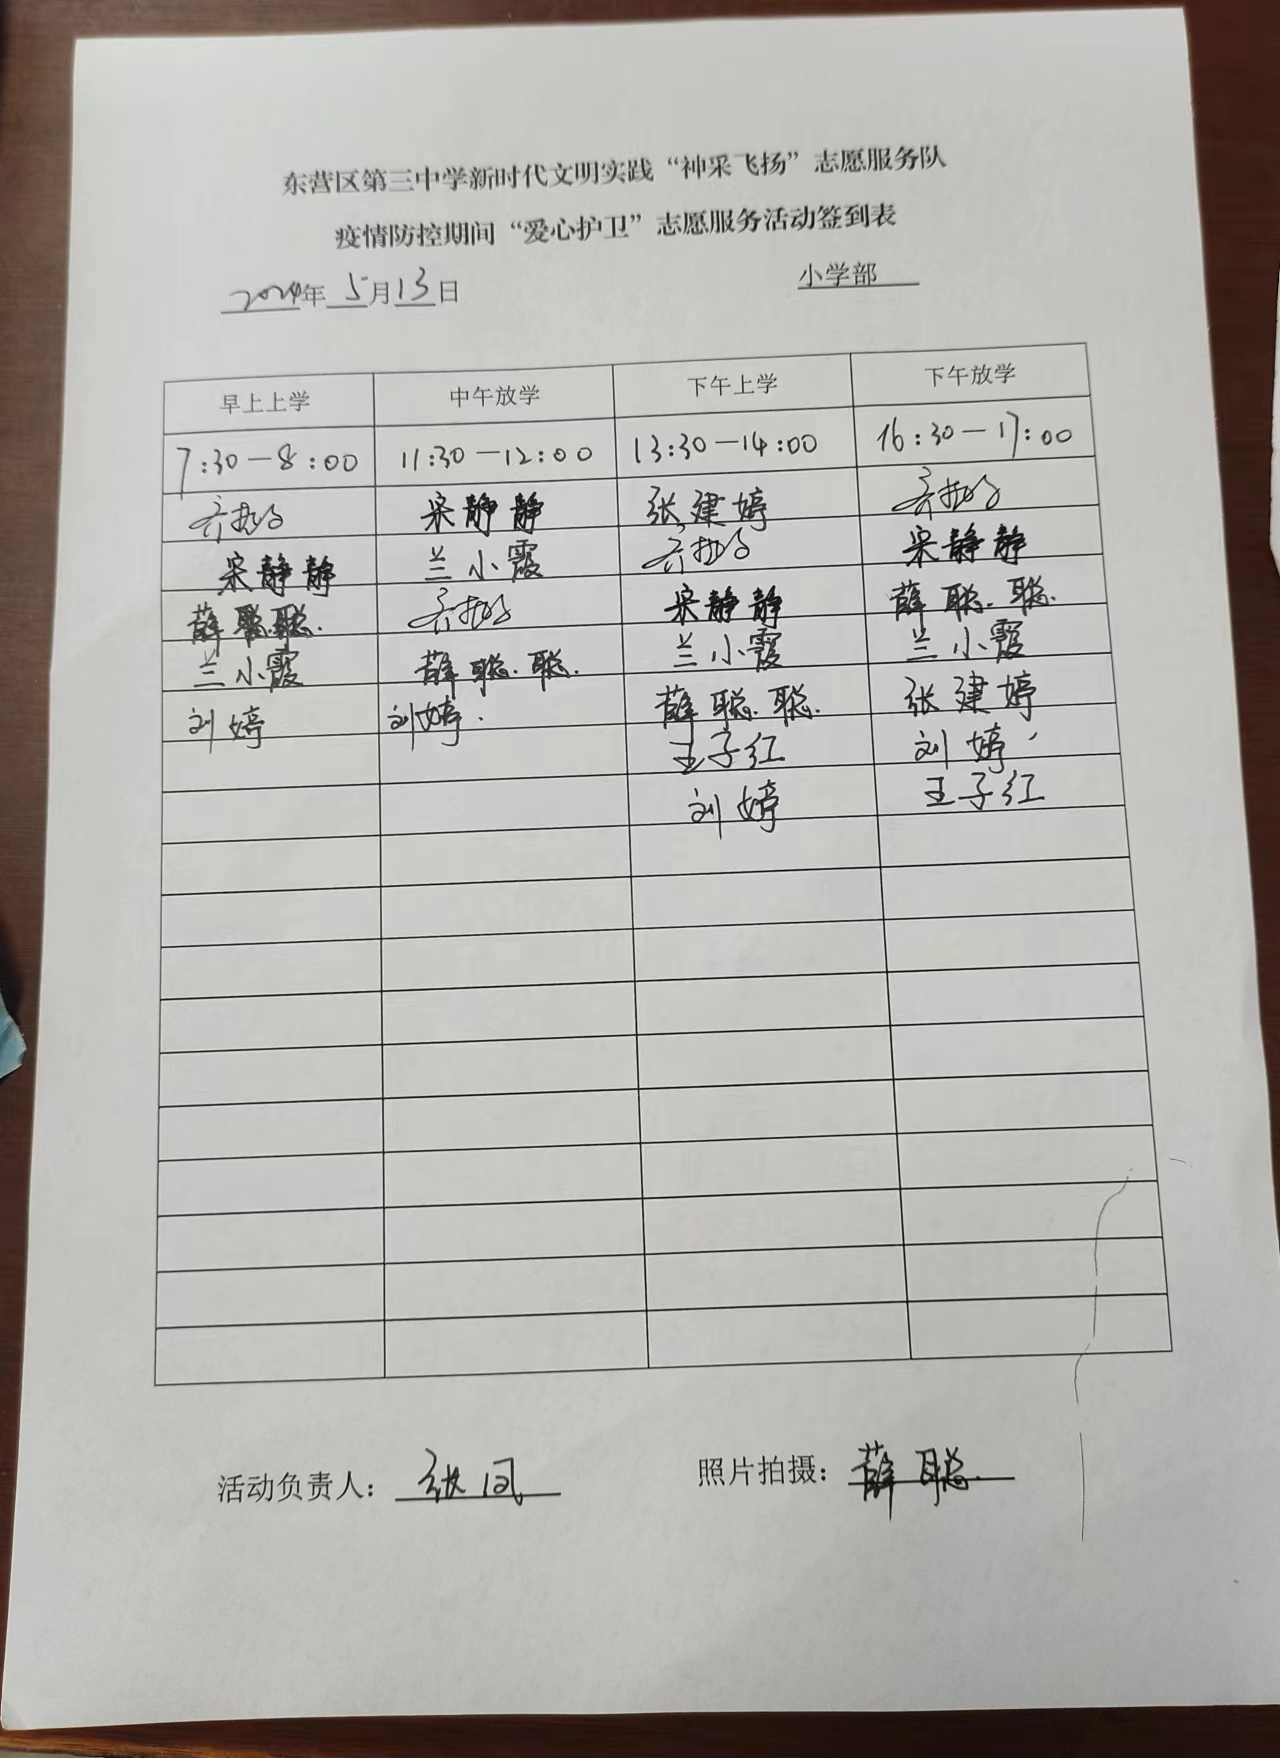 东营区第三中学新时代文明实践“神采飞扬”志愿服务队
疫情防控期间“爱心护卫”志愿服务活动签到表
2024年 5月13日 小学部
早上上学 中午放学 下午上学 下午放学
7:30-8:00 11:30-12:00 13:30-14:00 16:30-17:00
宋静静 张建婷
宋静静 兰小霞 宋静静
薛聪聪 宋静静 薛聪聪
兰小霞 薛聪聪 兰小霞 兰小霞
刘婷 刘婷 薛聪聪 张建婷
王子红 刘婷
刘婷 王子红
活动负责人：张凤 照片拍摄：薛聪